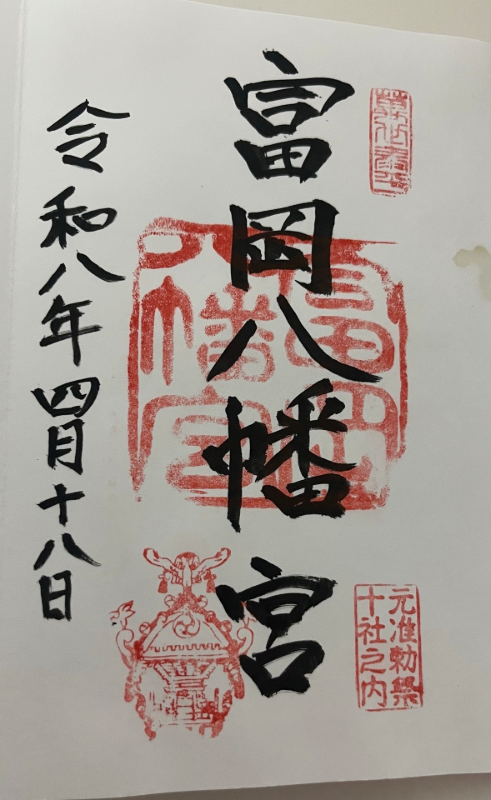 富岡八幡宮
富岡八幡宮
元准勅祭
十社之内
令和八年四月十八日